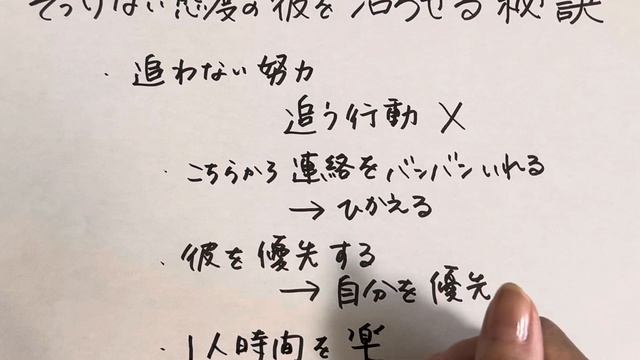 そっけない態度の彼を沼らせる秘訣
・追わない努力
追う行動 ×
・こちらから連絡をバンバンいれる
→ ひかえる
・彼を優先する
→ 自分を優先
・1人時間を楽